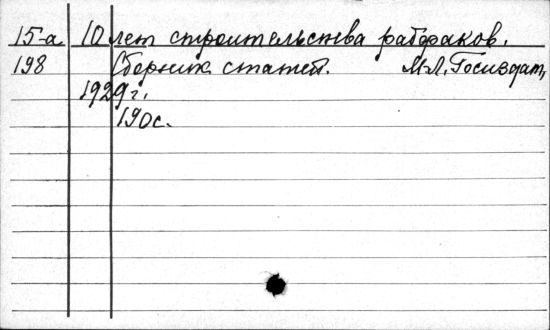 15-а 10 лет строительства рабфаков.
198 Сборник статей. М-Л, Госиздат,
1929г.
190с.